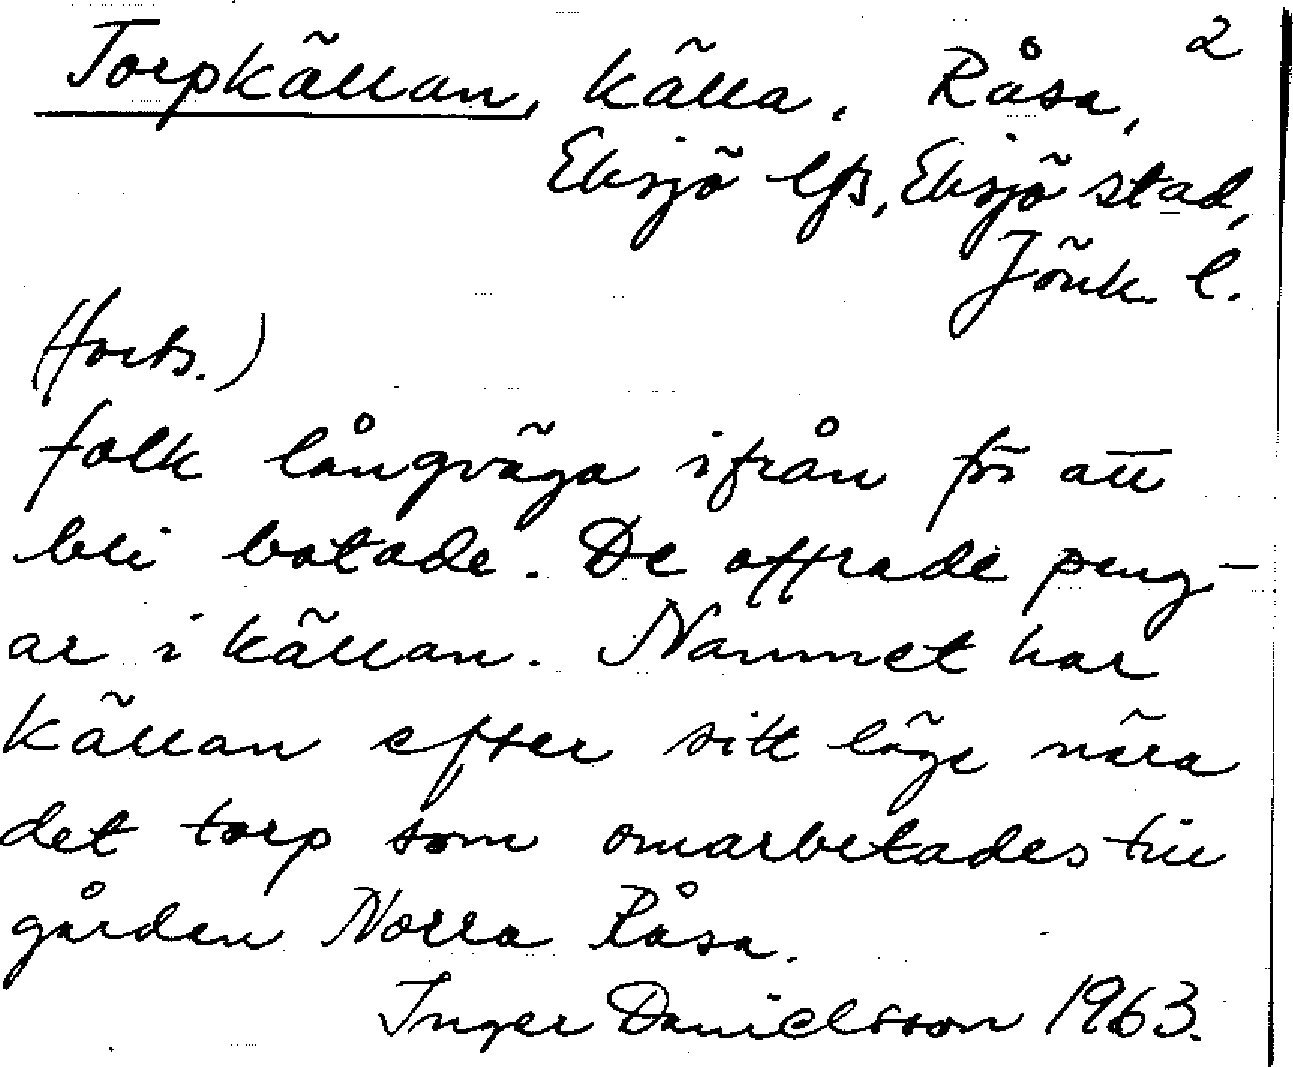 2
Torpkällan, källa, Råsa,
Eksjö lfs, Eksjö stad,
Jönk. l.
(Forts.)
folk långväga ifrån för att
bli botade. De offrade peng-
ar i källan. Namnet har
källan efter sitt läge nära
det torp som omarbetades till
gården Norra Råsa.
Inger Danielsson 1963.